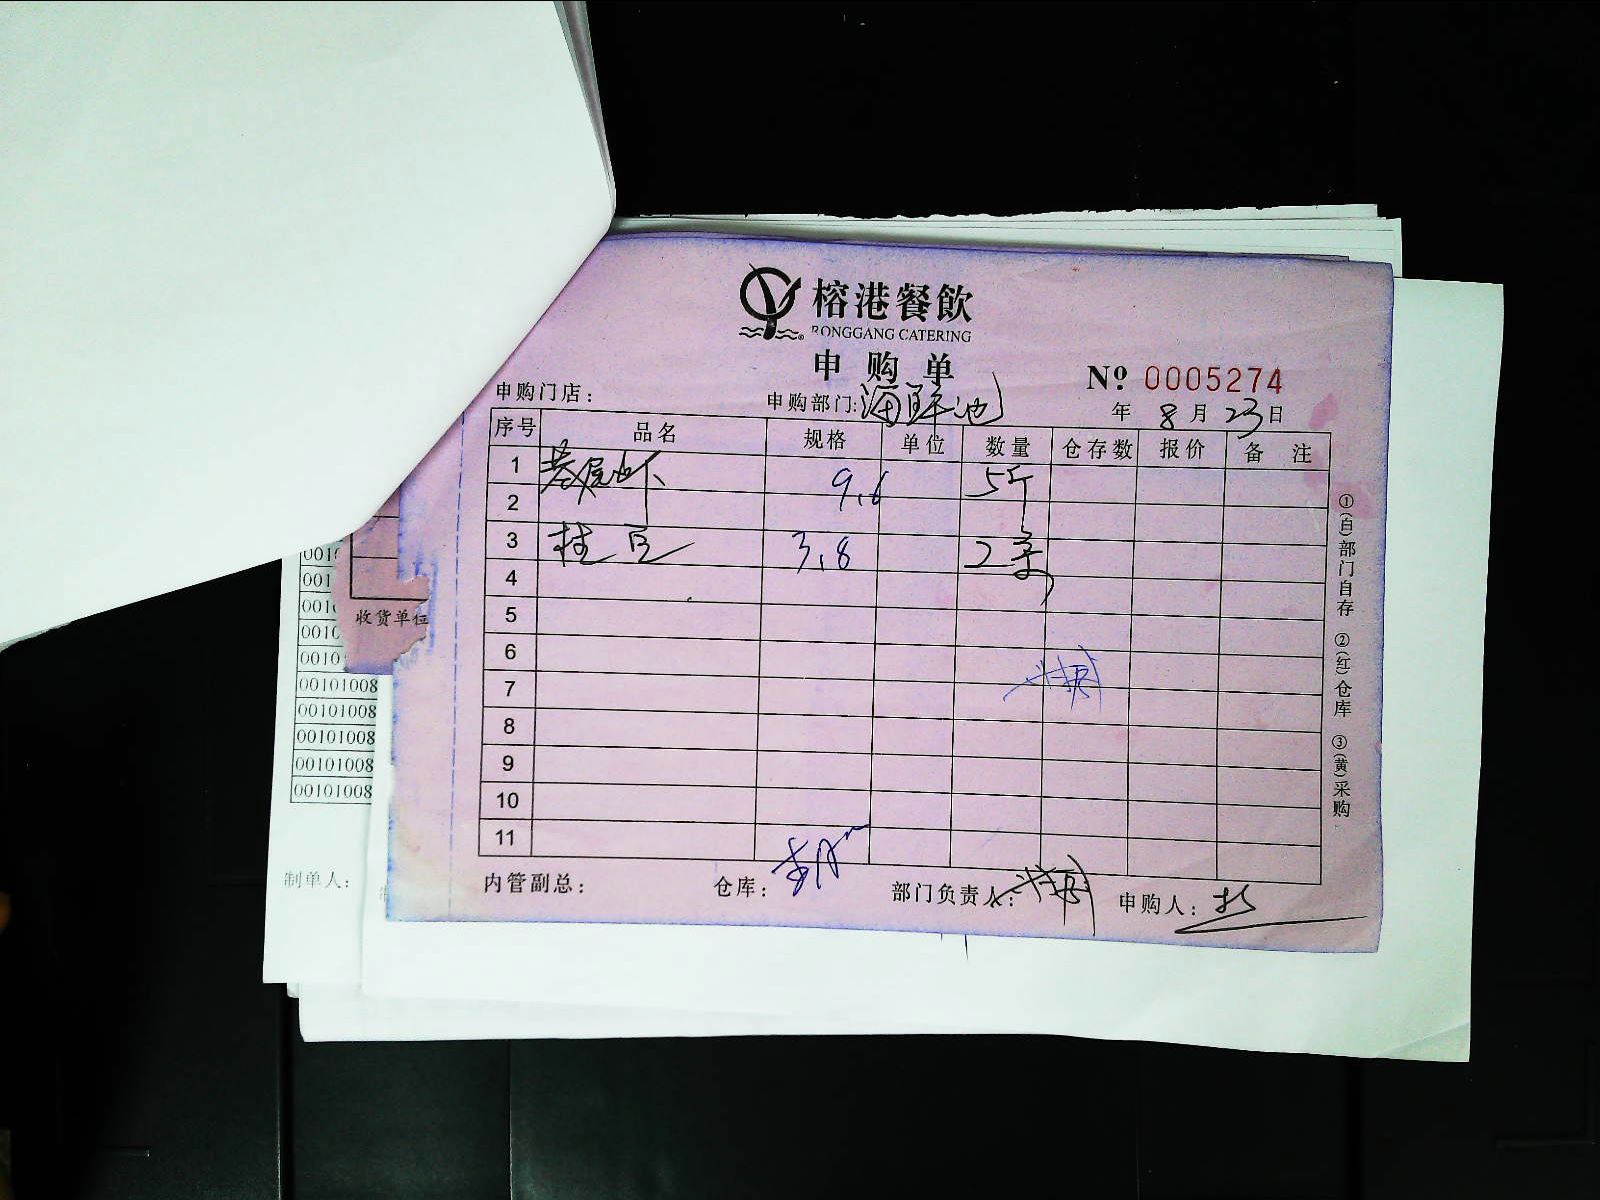 榕港餐飲
RONGGANG CATERING
申购单
№ 0005274
申购门店：
申购部门：海鲜池
年 8月23日
序号 品名 规格 单位 数量 仓存数 报价 备注
1 基尾虾 9.6 5斤
2
3 桂鱼 3.8 2条
4
5
6
7
8
9
10
11
内管副总： 仓库： 部门负责人： 申购人：
①(白)部门自存 ②(红)仓库 ③(黄)采购
收货单位
0010
001
0010
0010
0010
00101008
00101008
00101008
00101008
00101008
制单人：